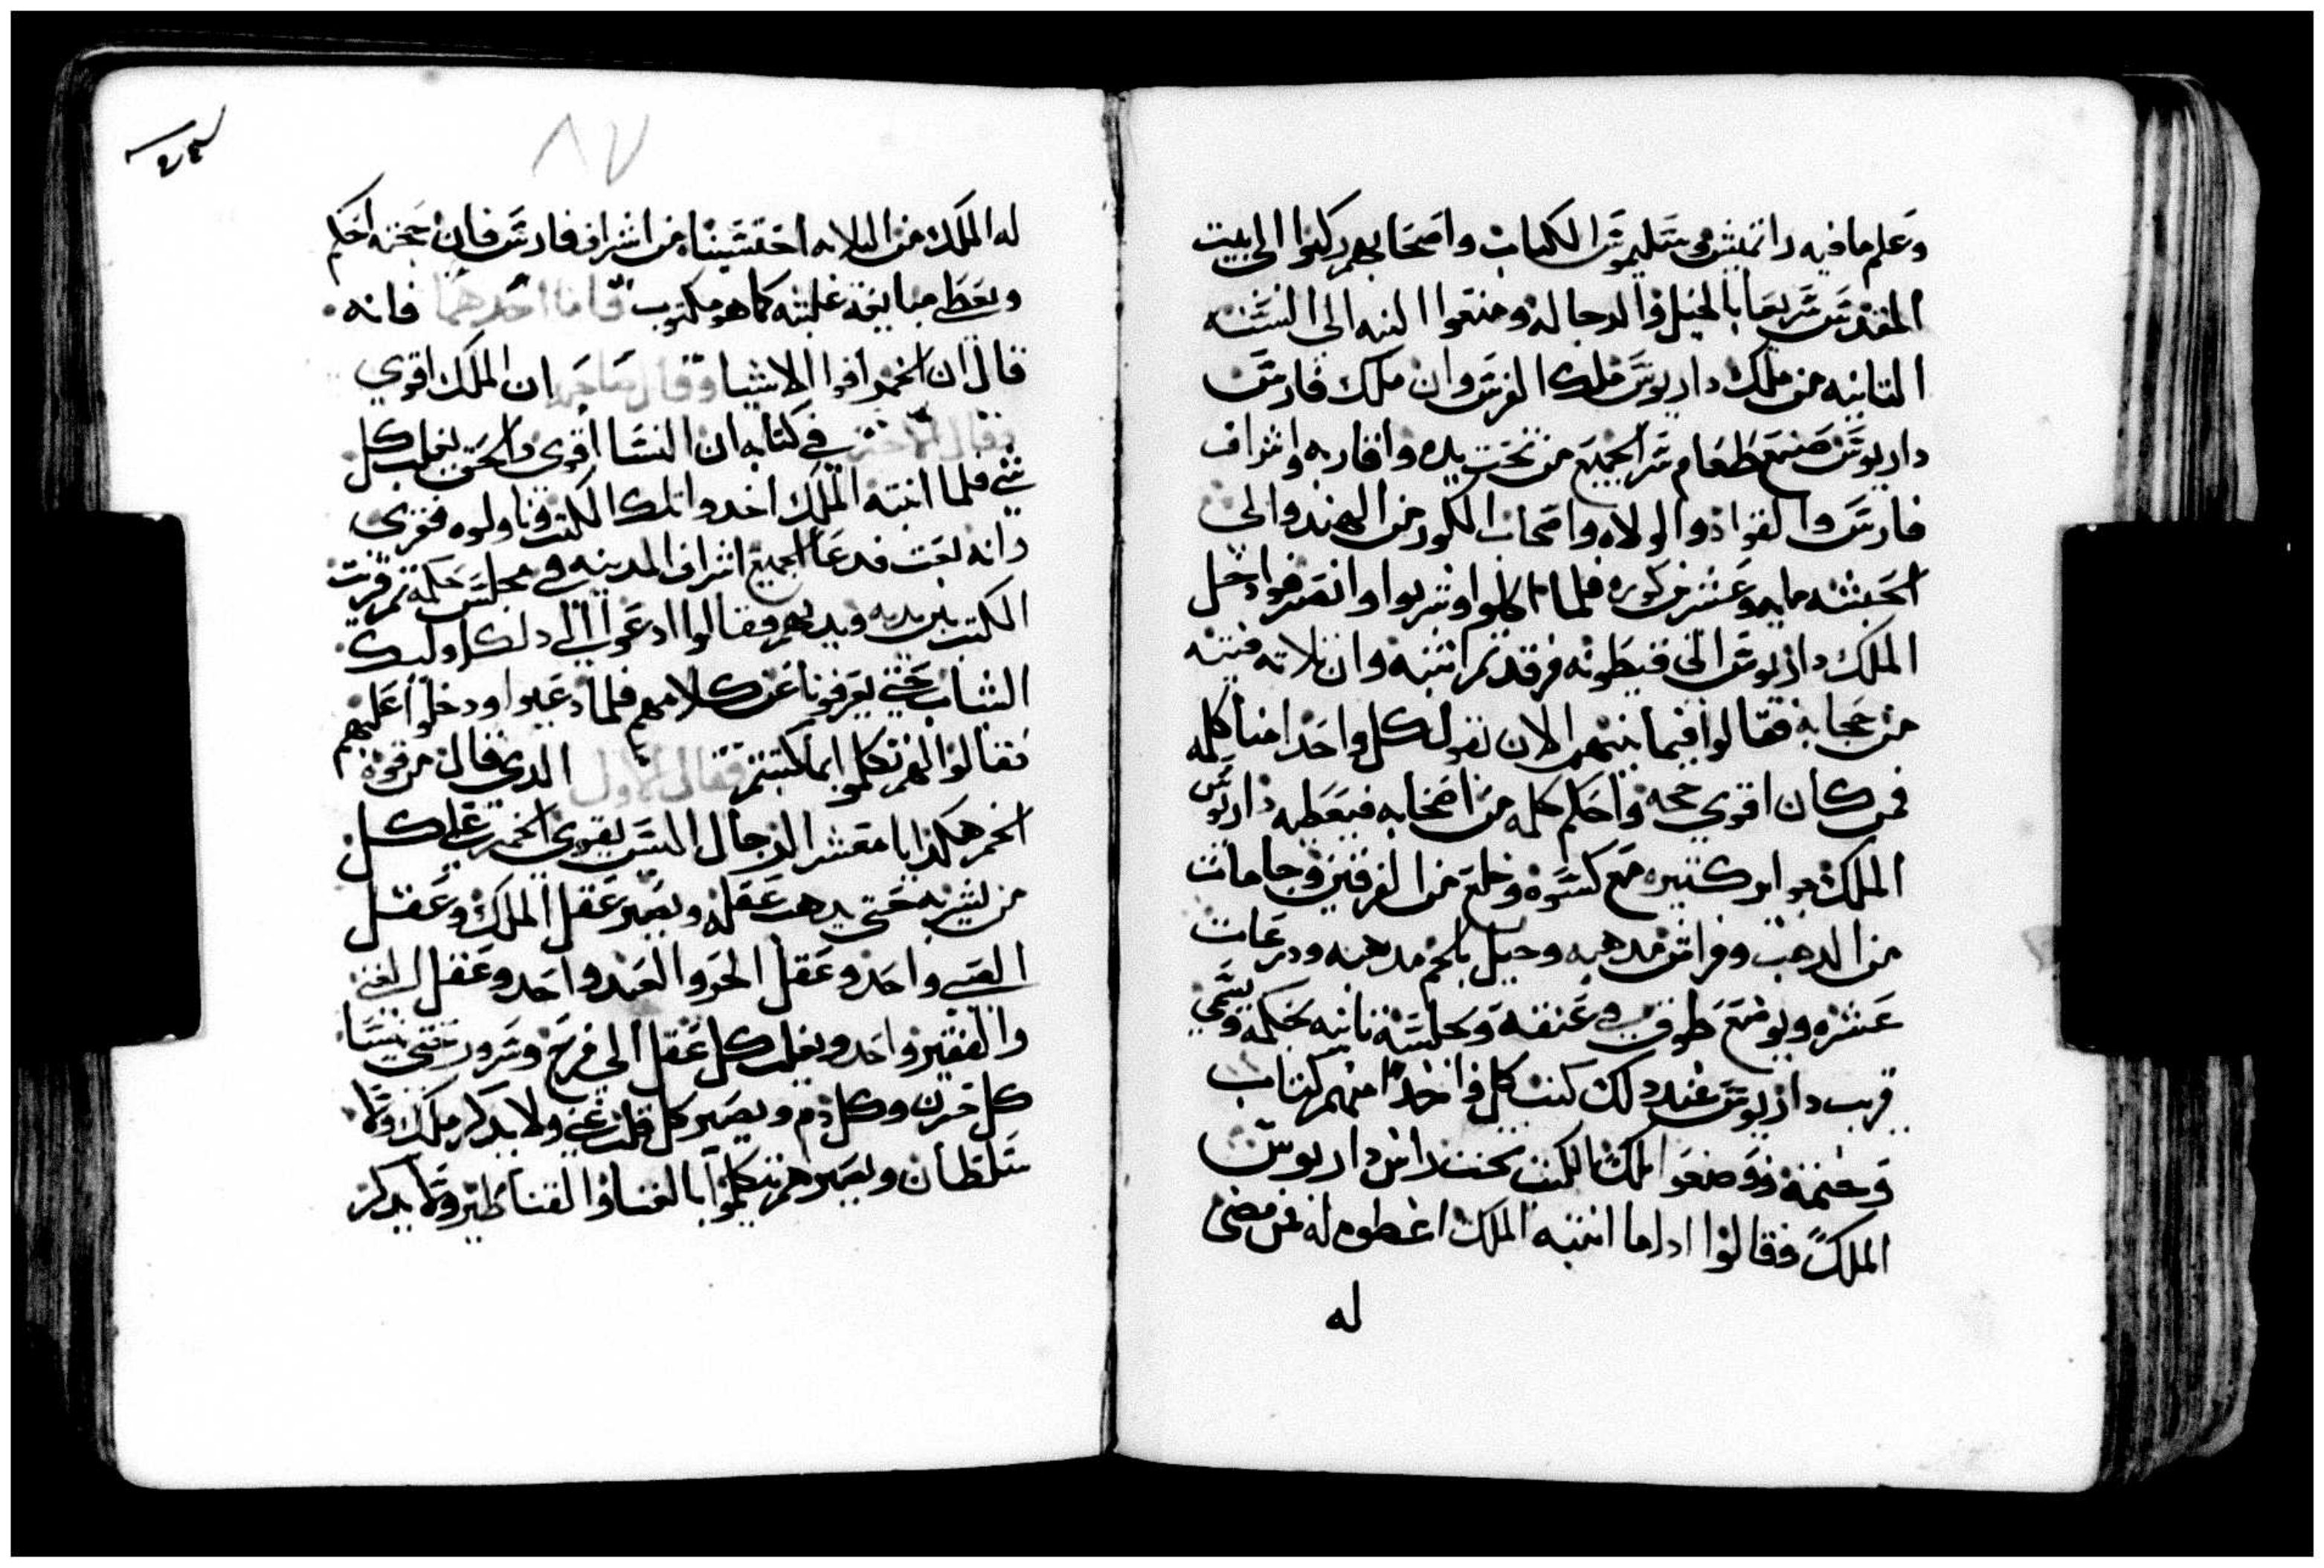 وعلم ما فيه رانمبش وسليموس الكتاب واصحابهم ركبوا الى بيت
المقدس سريعا بالخيل والرجاله ومنعوا البنه الى السنه
التانيه من ملك داريوس ملك الفرس وان ملك فارس
داريوس صنع طعام سر الجميع من تحت يده واقاربه واشراف
فارس والقواد والولاه واصحاب الكور من الهند والى
الحبشه مايه وعشرين كوره فلما اكلوا وشربوا وانصرفوا دخل
الملك داريوس الى قيطونه فرقد تم انتبه وان تلاته فتيه
من حجابه فقالوا فيما بينهم الان نقول كل واحد منا كلمه
فمن كان اقوي حجه واحكم كلمه من اصحابه فيعطيه داريوس
الملك جوايز كتيره مع كسوه وخلع من الفرفير وجامات
من الدهب وفراش مدهبه وخيل بلجم مدهبه ودرعات
عشره ويوضع طوق في عنقه ويجلس تانيه بحكمه ويسمي
قريب داريوس عند دلك كتب كل واحدا منهم كتاب
وختمه ووضعوا تلك الكتب تحت راس داريوس
الملك وقالوا ادا ما انتبه الملك اعطوه له فمن قضى
له
٨٧
له الملك من التلاته احتسبناه من اشراف فارس فان حجته احكم
ويعطى مبايعة غلبته كما هو مكتوب فاما احدهما فانه
قال ان الخمر اقوا الاشيا وقال صاحبه ان الملك اقوي
وقال الاخر في كتابه ان النسا اقوي والحق يغلب كل
شي فلما انتبه الملك اخدوا تلك الكتب وناولوه فقرى
وانه بعت فدعا جميع اشراف المدينه في مجلس حكمه تم قريت
الكتب بين يديه وبديهم وقالوا ادعوا لي دلك اوليك
الشباب حتى يعرفونا عن كلامهم فلما دعيوا ودخلوا عليهم
فقالوا لهم تكلموا بما كتبتم فقال الاول الدي قال من قوة
الخمر هكذا يا معشر الرجال اليس يقوي الخمر على كل
من يشربه حتى يدهب عقله ويصير عقل الملك وعقل
الصبي واحد وعقل الحر والعبد واحد وعقل الغني
والفقير واحد ويغلب كل عقل الى فرح وسرور حتى ينسا
كل حزن وكل دم ويصير كل قلب غني ولا يدكر ملك ولا
سلطان ويصيرهم يتكلموا بالغنا والقناطير ولا يدكر